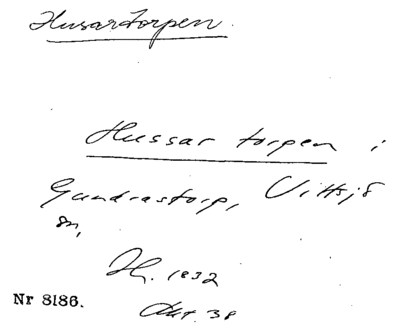 Husartorpen.
Hussar torpen i
Gundrastorp, Vittsjö
sn,
H. 1832
Akt. 38
Nr 8186.